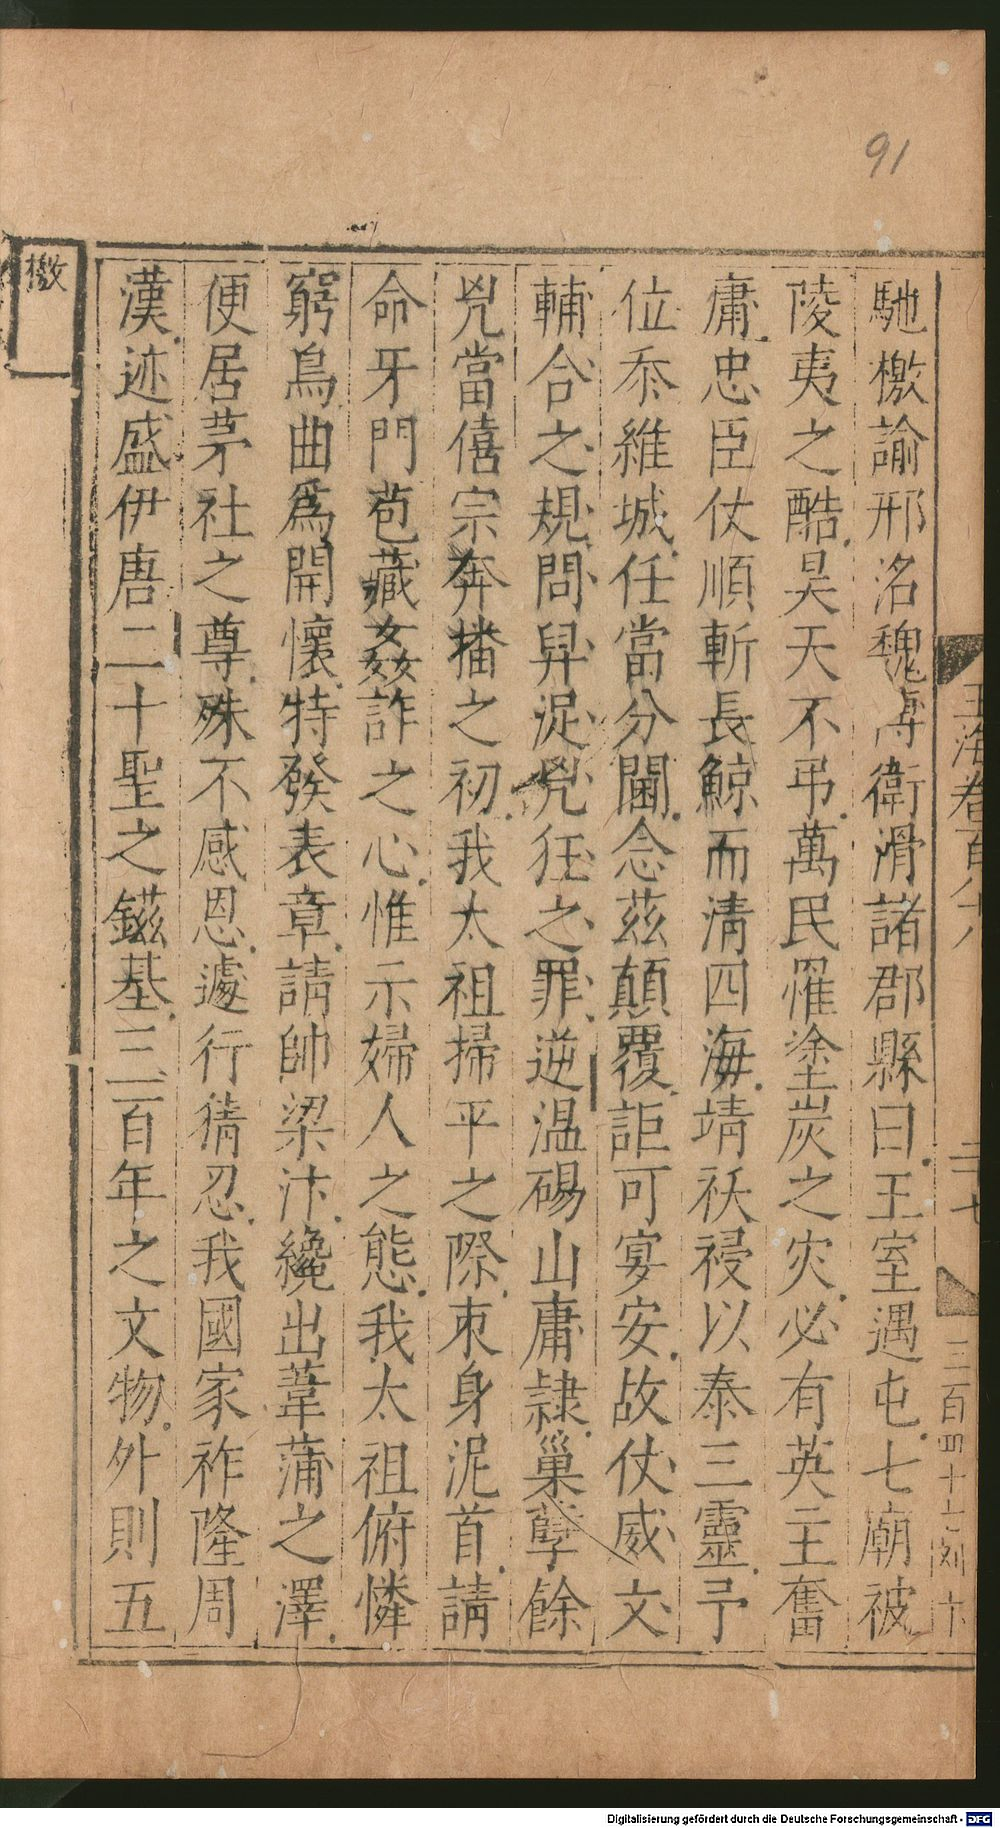 91
玉海卷百八八
二七
三百四十七刘卞
馳檄諭邢洺魏博衛滑諸郡縣曰王室遇屯七廟被
陵夷之酷昊天不弔萬民罹塗炭之灾必有英主奮
庸忠臣仗順斬長鯨而清四海靖祅祲以泰三靈予
位忝維城任當分閫念茲顛覆詎可宴安故仗威文
輔合之規問羿浞兇狂之罪逆温碭山庸隷巢孽餘
兇當僖宗奔播之初我太祖掃平之際束身泥首請
命牙門苞藏姦詐之心惟示婦人之態我太祖俯憐
窮鳥曲爲開懷特發表章請帥梁汴纔出葦蒲之澤
便居茅社之尊殊不感恩遽行猜忍我國家祚隆周
漢迹盛伊唐二十聖之鎡基三百年之文物外則五
檄
Digitalisierung gefördert durch die Deutsche Forschungsgemeinschaft - DFG